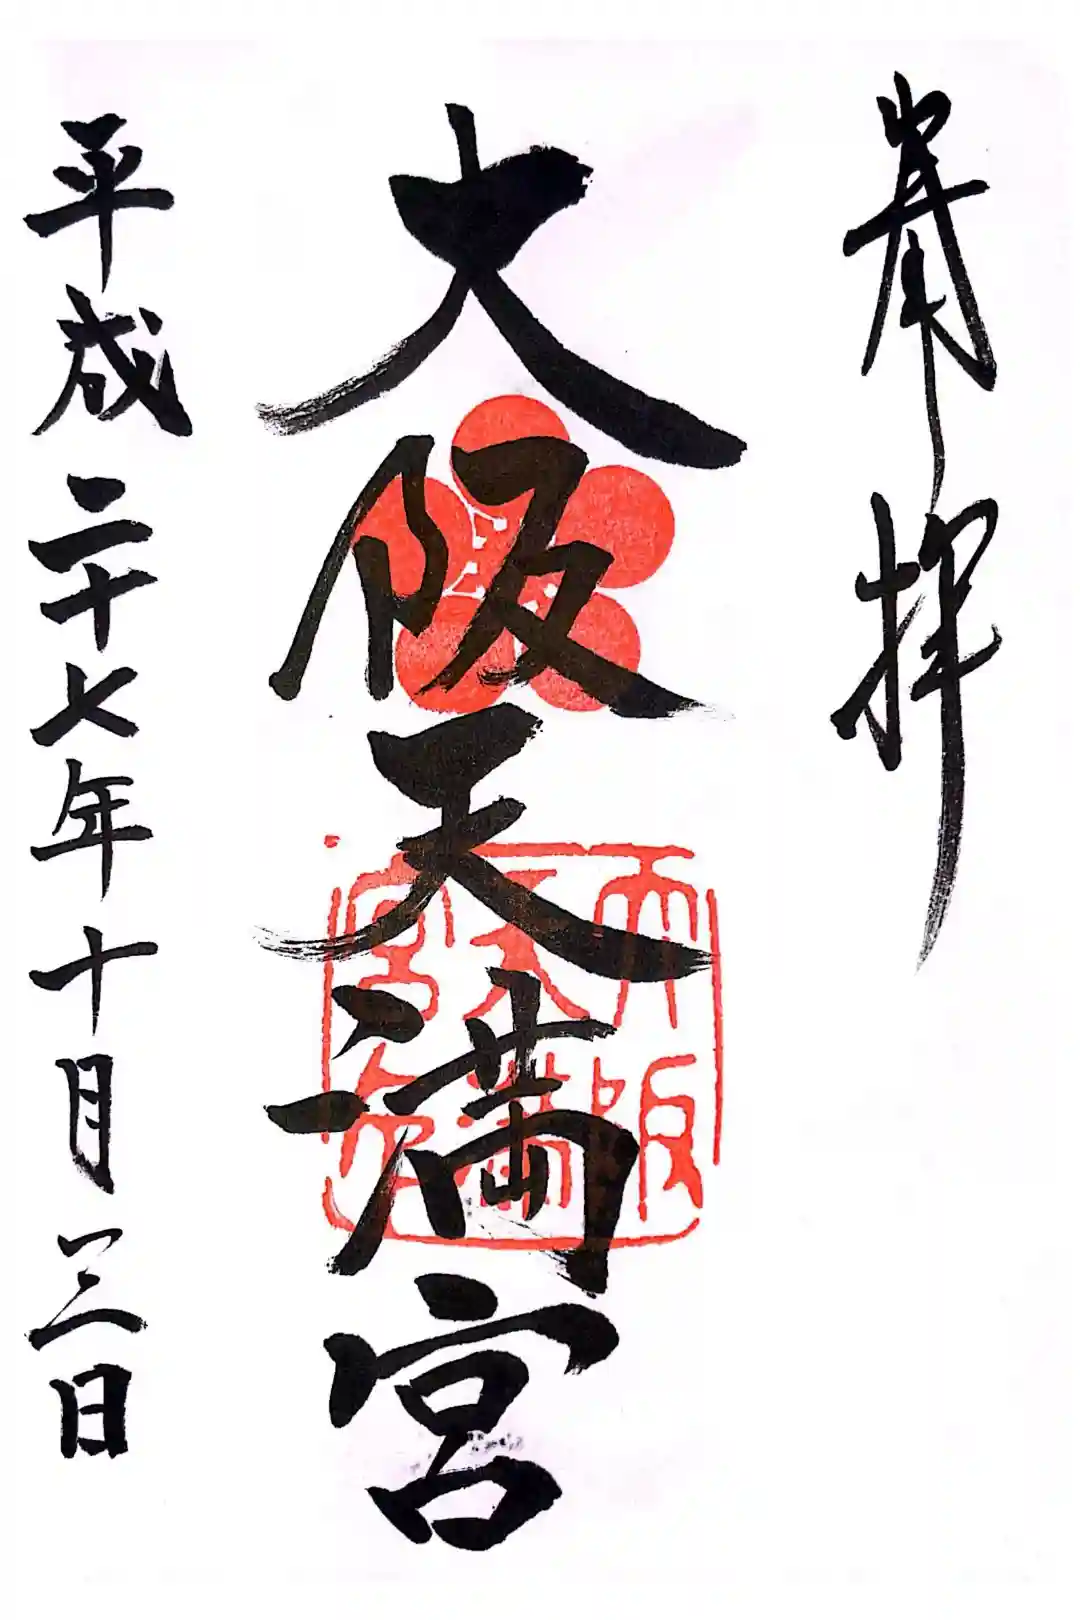 奉拝
大阪天満宮
大阪天満宮印
平成二十七年十月三日